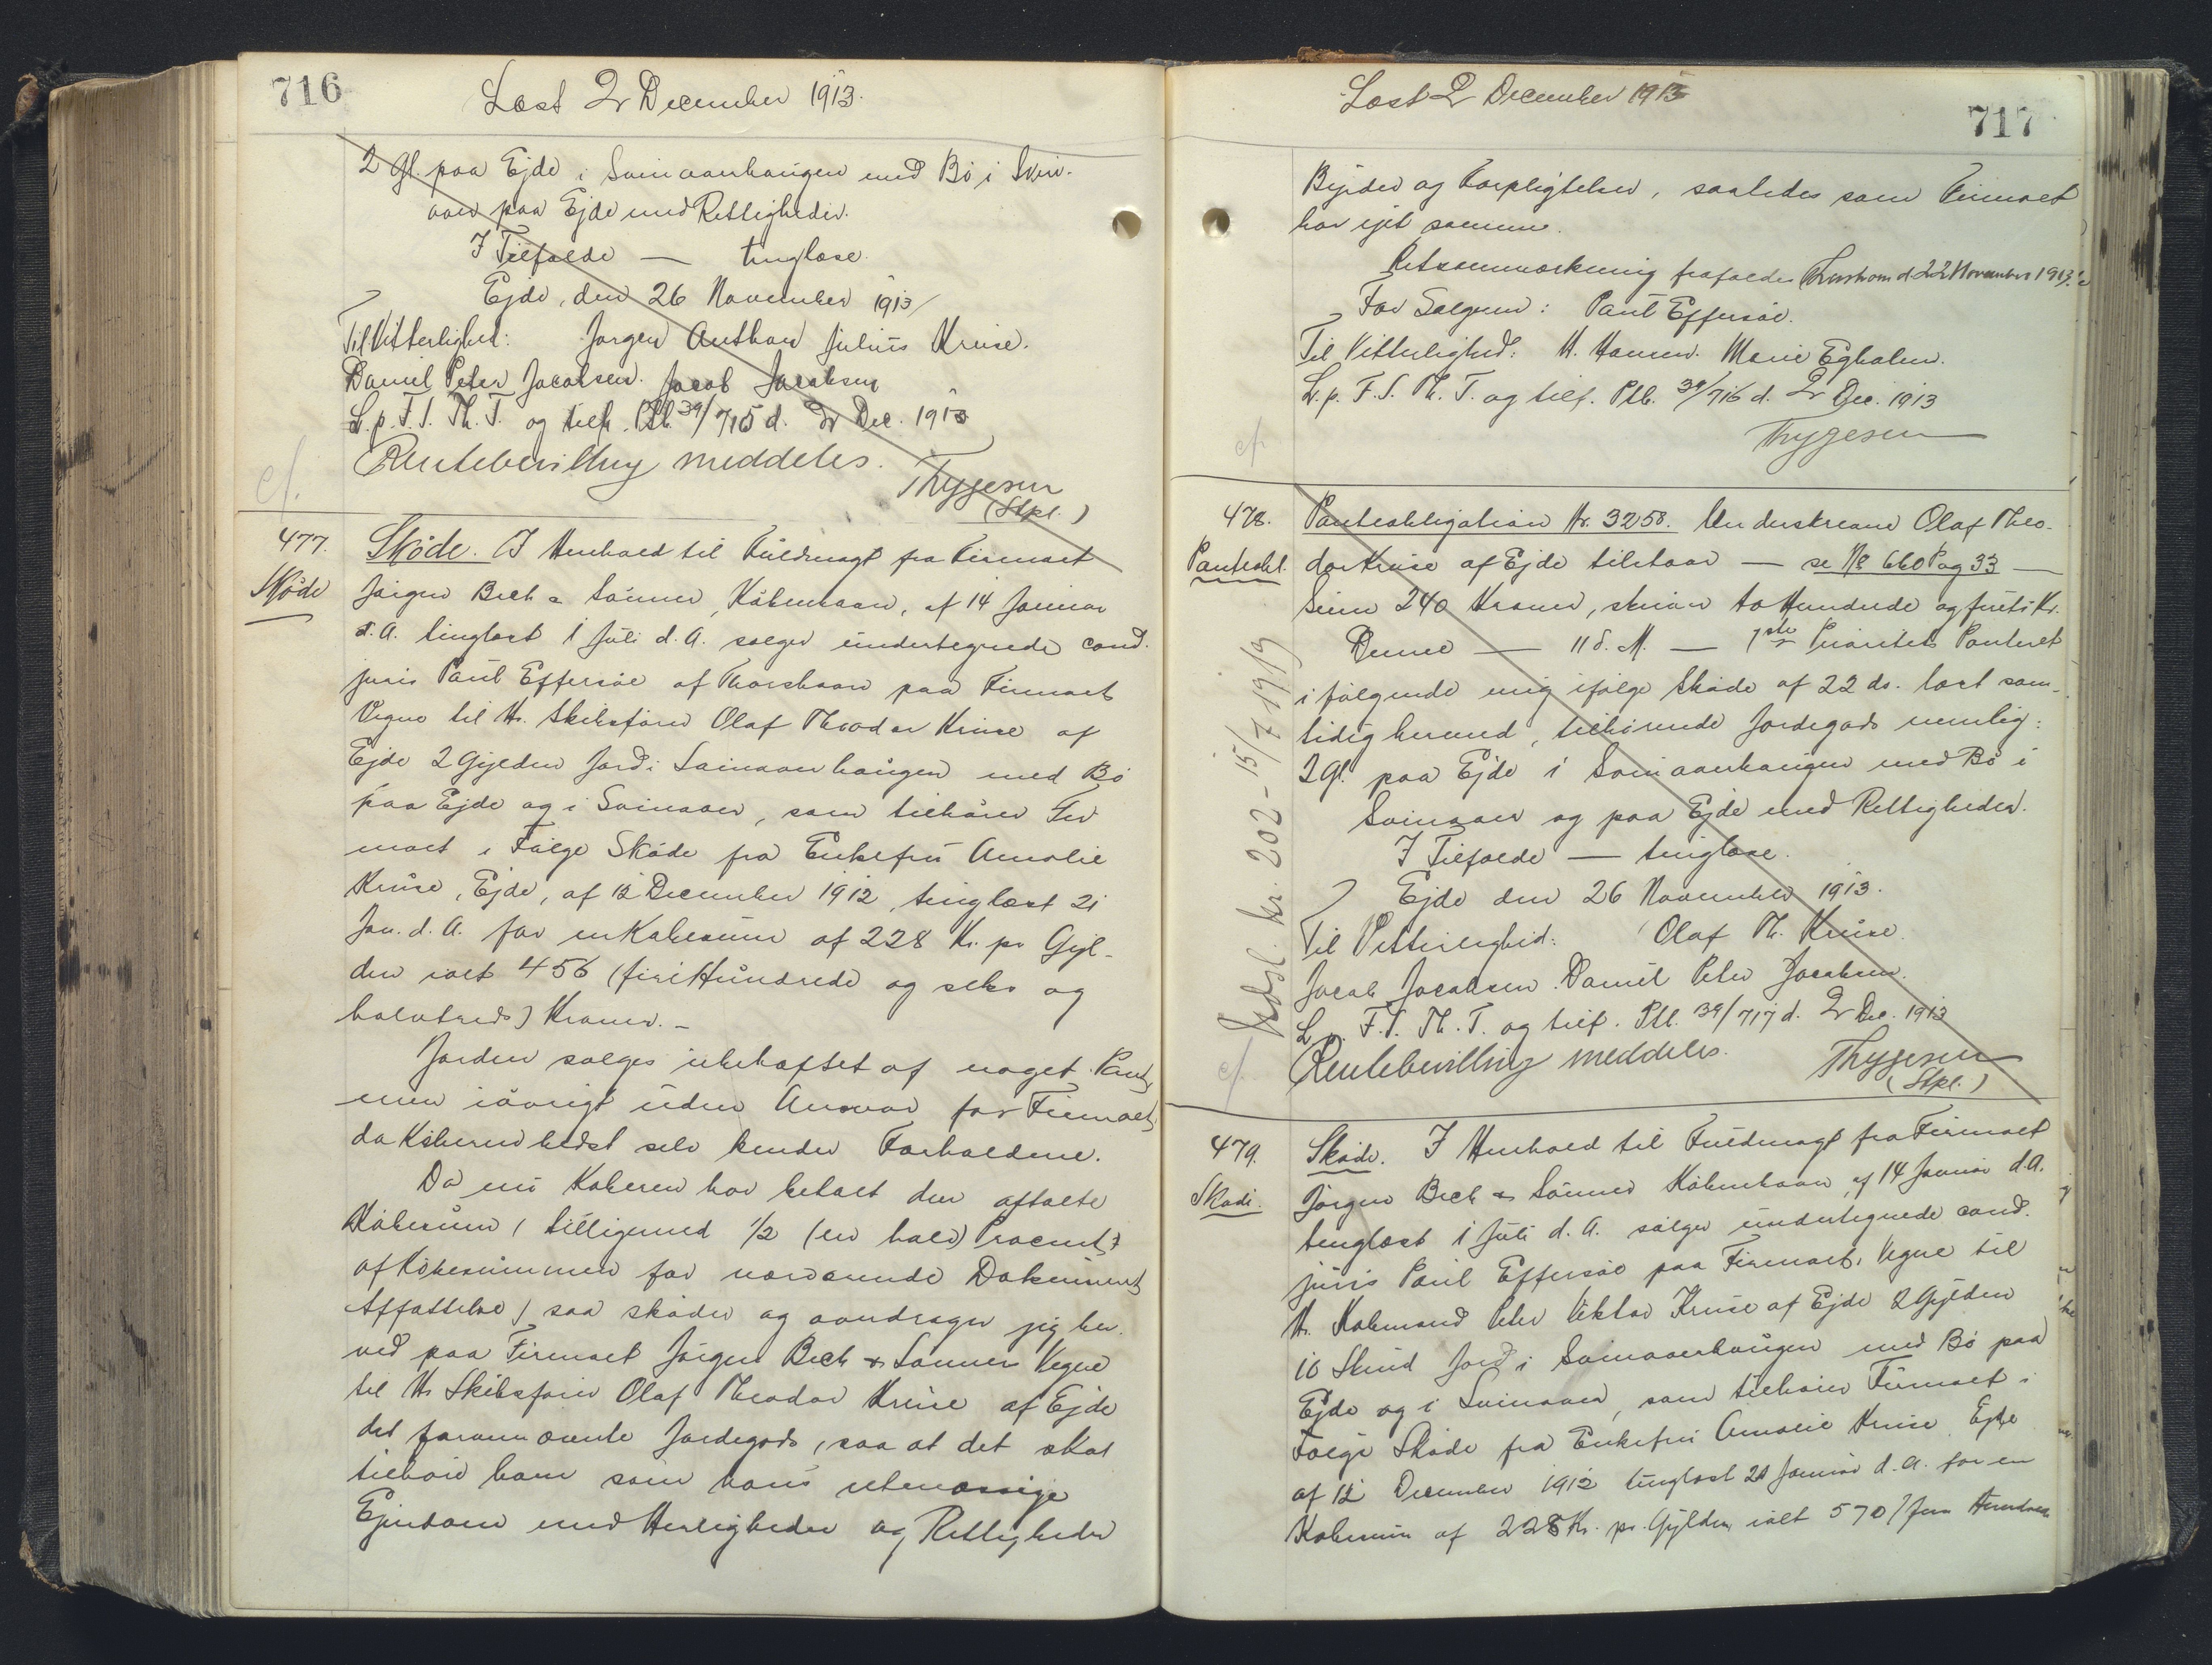 716
Læst 2 December 1913.
2 Gl. paa Ejde i Svinaarhaugen med Bø i Svin-
aar paa Ejde med Rettigheder.
I Tilfælde — tinglæse.
Ejde, den 26 November 1913
Til Vitterlighed: Jørgen Anthon Julius Kruse.
Daniel Peter Jacobsen. Jacob Jacobsen
L. p. F. S. Th. T. og tilf. Ptb. 39/715 d. 2 Dec. 1913
Rentebevilling meddeles.
Thygesen
(Stpl.)
cf.
477.
Skøde
Skøde. I Henhold til Fuldmagt fra Firmaet
Jørgen Bech & Sønner, København, af 14 Januar
d. A. tinglæst 1 Juli d. A. sælger undertegnede cand.
juris Paul Effersøe af Thorshavn paa Firmaets
Vegne til Hr. Skibsfører Olaf Theodor Kruse af
Ejde 2 Gylden Jord i Svinaarhaugen med Bø
paa Ejde og i Svinaar, som tilhører Fir
maet i Følge Skøde fra Enkefru Amalie
Kruse, Ejde, af 12 December 1912, tinglæst 21
Jan. d. A. for en Købesum af 228 Kr. pr Gyl-
den ialt 456 (fire Hundrede og seks og
halvtreds) Kroner. –
Jorden sælges ubehæftet af noget Pant,
men iøvrigt uden Ansvar for Firmaet,
da Køberen bedst selv kender Forholdene.
Da nu Køberen har betalt den aftalte
Købesum (tilligemed 1/2 (en halv) Procent
af Købesummen for nærværende Dokuments
Affattelse) saa skøder og overdrager jeg her
ved paa Firmaet Jørgen Bech & Sønners Vegne
til Hr Skibsfører Olaf Theodor Kruse af Ejde
det forannævnte Jordegods, saa at det skal
tilhøre ham som hans retmæssige
Ejendom med Herligheder og Rettigheder
Læst 2 December 1913
717
Byrder og Forpligtelser, saaledes som Firmaet
har ejet samme.
Retsanmærkning frafaldes Thorshavn d 22 November 1913.
For Sælgeren: Paul Effersøe.
Til Vitterlighed: H. Hansen. Marie Egholm.
L. p. F. S. Th. T. og tilf. Ptb. 39/716 d. 2 Dec. 1913
Thygesen
cf.
478.
Panteobl.
Panteobligation Nr. 3258. Underskrevne Olaf Theo-
dor Kruse af Ejde tilstaar — se No 660 Pag 33 —
Sum 240 Kroner, skriver to Hundrede og fyrti Kr.
Denne — 11 d. M. — 1ste Prioritets Panteret
i følgende mig ifølge Skøde af 22 ds. læst sam-
tidig hermed, tilhørende Jordegods nemlig:
2 Gl. paa Ejde i Svinaarhaugen med Bø i
Svinaar og paa Ejde med Rettigheder.
I Tilfælde — tinglæse.
Ejde den 26 November 1913.
Til Vitterlighed: Olaf Th. Kruse.
Jacob Jacobsen. Daniel Peter Jacobsen.
L. p. F. S. Th. T. og tilf. Ptb. 39/717 d. 2 Dec. 1913
Rentebevilling meddeles.
Thygesen
(Stpl.)
cf.
Udsl. Nr. 202 - 15/7 1919
479.
Skøde.
Skøde. I Henhold til Fuldmagt fra Firmaet
Jørgen Bech & Sønner København, af 14 Januar d.A.
tinglæst 1 Juli d. A. sælger undertegnede cand.
juris Paul Effersøe paa Firmaets Vegne til
Hr. Købmand Peter Viktor Kruse af Ejde 2 Gylden
10 Skind Jord i Svinaarhaugen med Bø paa
Ejde og i Svinaar, som tilhører Firmaet i
Følge Skøde fra Enkefru Amalie Kruse Ejde
af 12 December 1912 tinglæst 21 Januar d. A. for en
Købesum af 228 Kr. pr. Gylden, ialt 570 (fem Hundrede